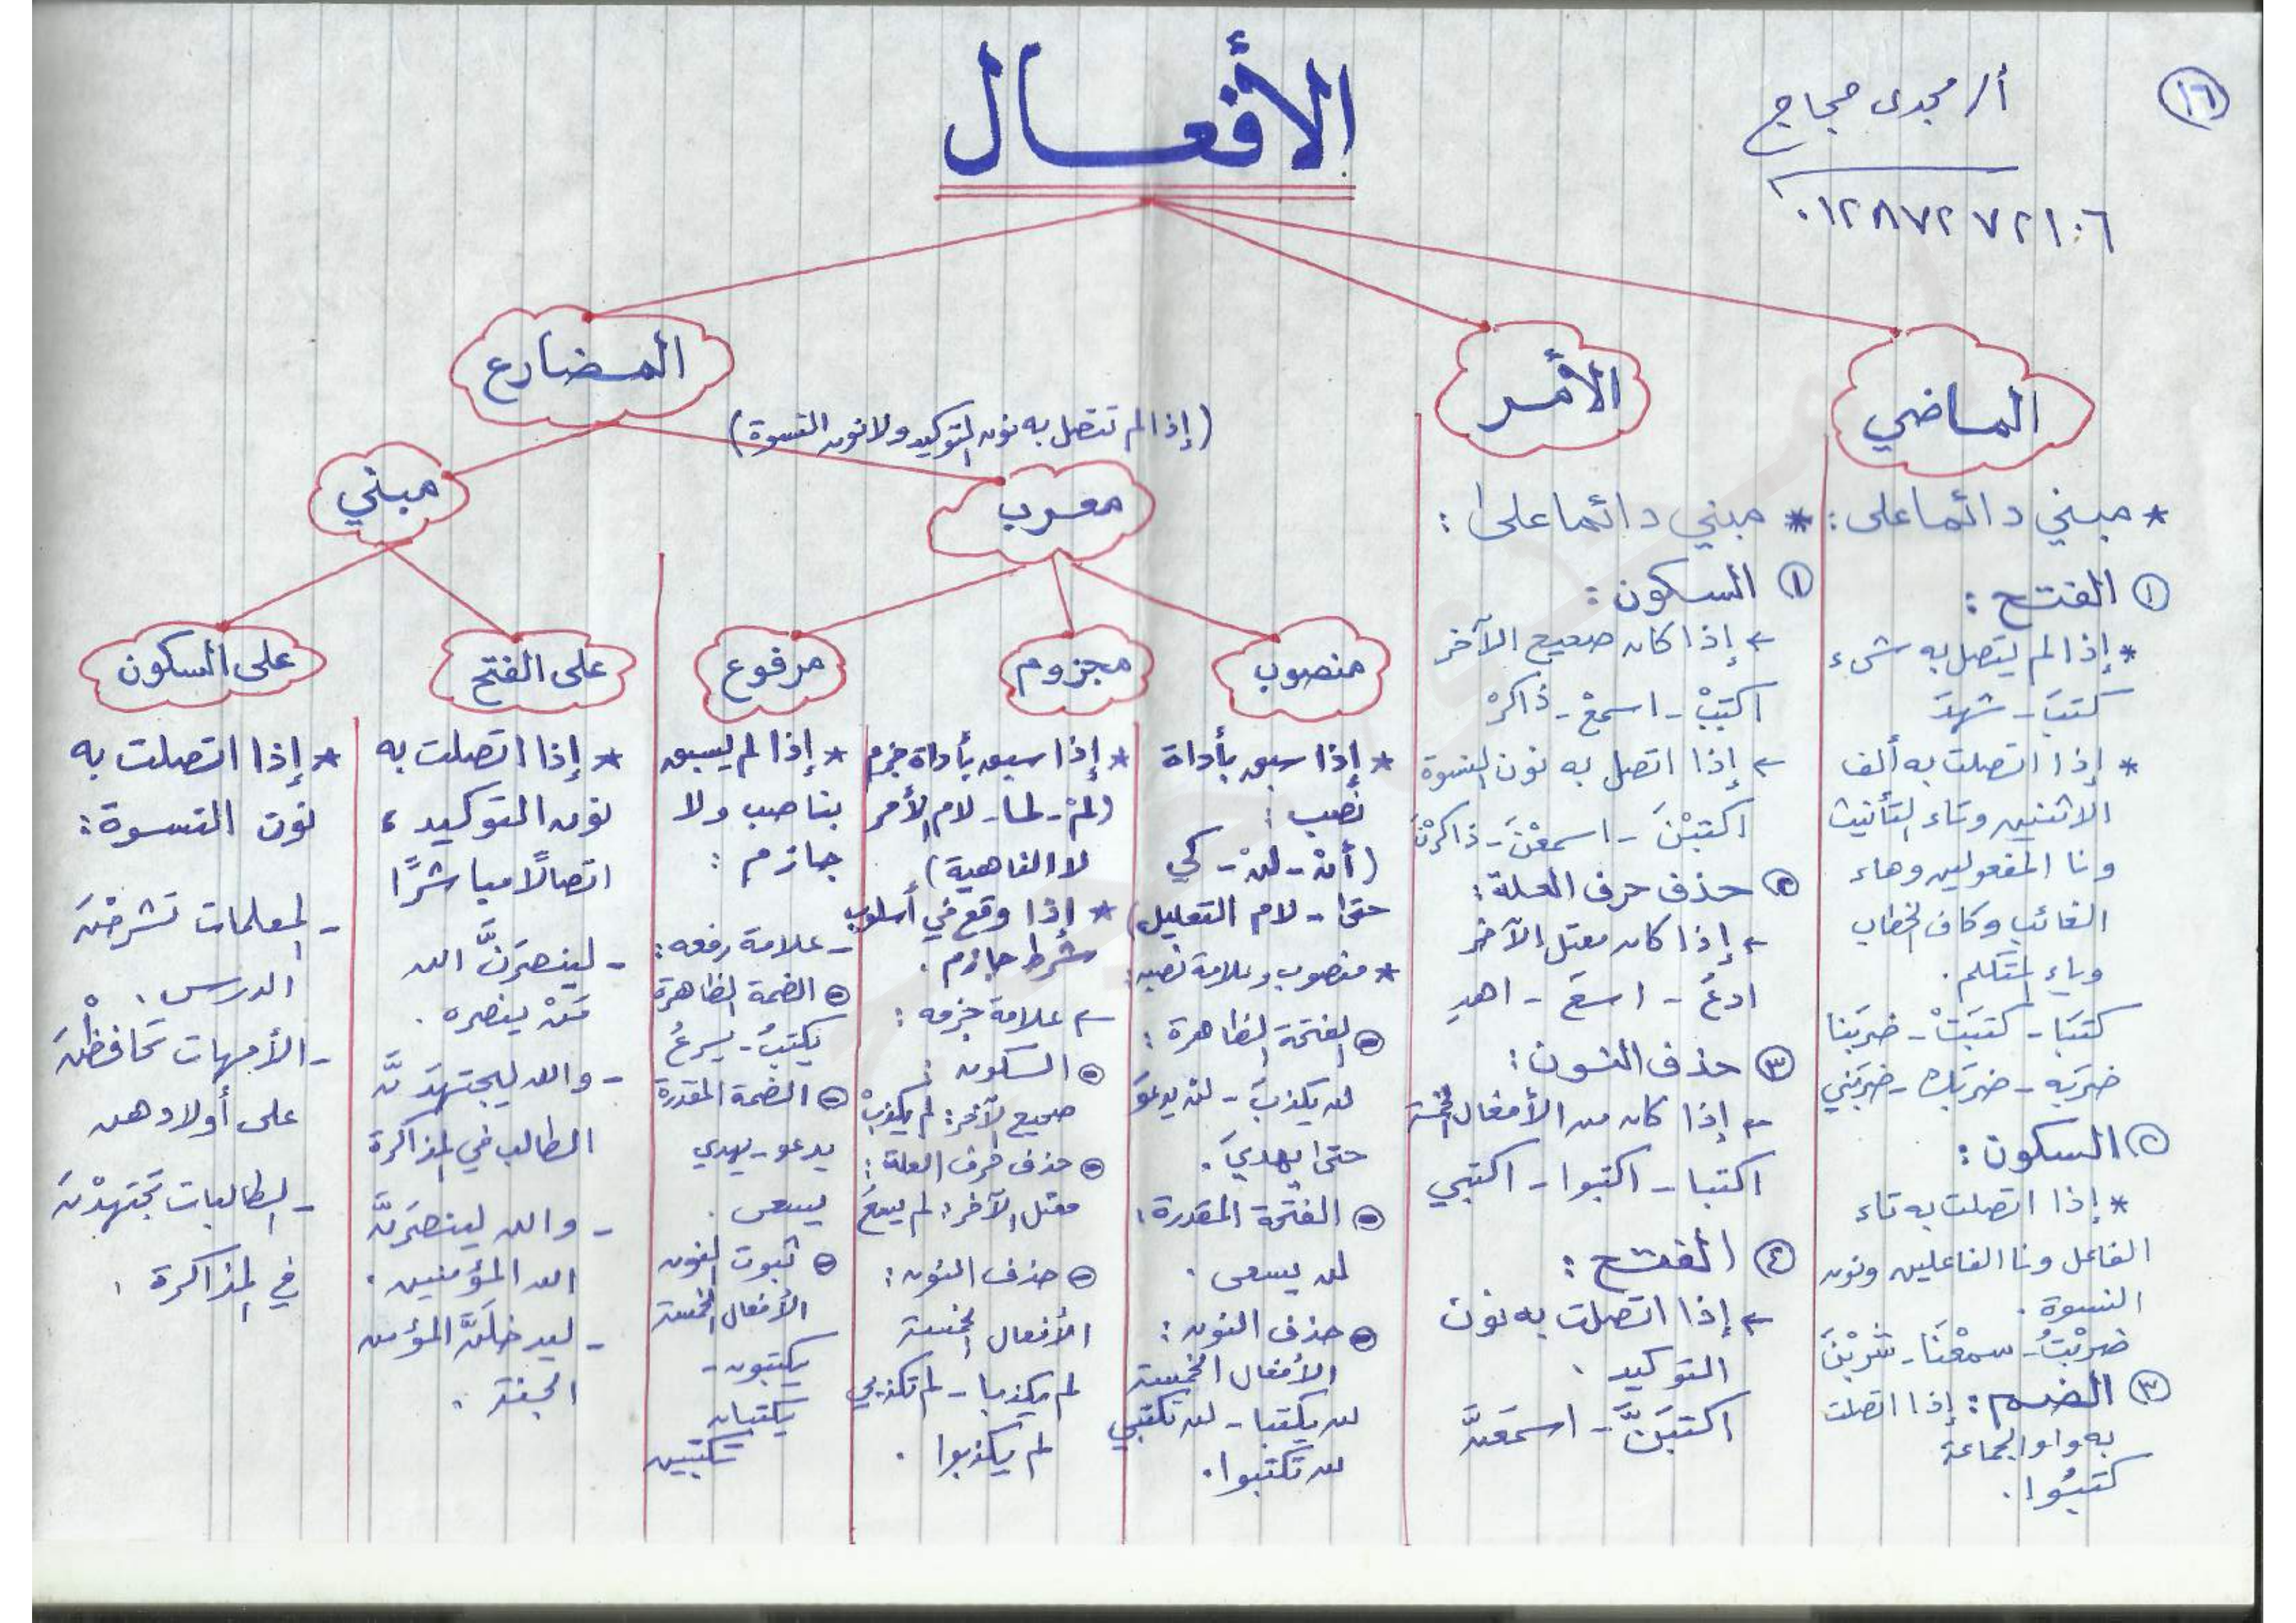 ١٦
أ/ مجدى حجاج
٠١٢٨٧٢٧٢١٠٦
الأفعال
الماضي
* مبني دائما على:
١ الفتح:
* إذا لم يتصل به شىء
كتبَ - شهدَ
* إذا اتصلت به ألف
الاثنين وتاء التأنيث
ونا المفعولين وهاء
الغائب وكاف الخطاب
وياء المتكلم.
كتبَا - كتبَتْ - ضربَنا
ضربَه - ضربَك - ضربَني
٢ السكون:
* إذا اتصلت به تاء
الفاعل ونا الفاعلين ونون
النسوة.
ضربْتُ - سمعْنَا - شربْنَ
٣ الضم: إذا اتصلت
به واو الجماعة
كتبُوا.
الأمر
* مبني دائما على:
١ السكون:
← إذا كان صحيح الآخر
اكتبْ - اسمعْ - ذاكرْ
← إذا اتصل به نون النسوة
اكتبْنَ - اسمعْنَ - ذاكرْنَ
٢ حذف حرف العلة:
← إذا كان معتل الآخر
ادعُ - اسعَ - اهدِ
٣ حذف النون:
← إذا كان من الأفعال الخمسة
اكتبا - اكتبوا - اكتبي
٤ الفتح:
← إذا اتصلت به نون
التوكيد.
اكتبَنَّ - اسمعَنَّ
المضارع
(إذا لم تتصل به نون التوكيد ولا نون النسوة)
معرب
منصوب
* إذا سبق بأداة
نصب:
(أنْ - لنْ - كي
حتى - لام التعليل)
* منصوب وعلامة نصبه:
الفتحة الظاهرة:
لن يكذبَ - لن يدعوَ
حتى يهديَ.
الفتحة المقدرة:
لن يسعى.
حذف النون:
الأفعال الخمسة
لن يكتبا - لن تكتبي
لن تكتبوا.
مجزوم
* إذا سبق بأداة جزم
(لمْ - لما - لام الأمر
لا الناهية)
* إذا وقع في أسلوب
شرط جازم.
← علامة جزمه:
السكون:
صحيح الآخر: لم يكذبْ
حذف حرف العلة:
معتل الآخر: لم يسعَ
حذف النون:
الأفعال الخمسة
لم يكذبا - لم تكذبي
لم يكذبوا.
مرفوع
* إذا لم يسبق
بناصب ولا
جازم:
- علامة رفعه:
الضمة الظاهرة
يكتبُ - يسرعُ
الضمة المقدرة
يدعو - يهدي
يسعى.
ثبوت النون
الأفعال الخمسة
يكتبون -
يكتبان
تكتبين
مبني
على الفتح
* إذا اتصلت به
نون التوكيد،
اتصالًا مباشرًا
- لينصرَنَّ الله
مَنْ ينصره.
- والله ليجتهدَنَّ
الطالب في المذاكرة
- والله لينصرَنَّ
الله المؤمنين.
- ليدخلَنَّ المؤمن
الجنة.
على السكون
* إذا اتصلت به
نون النسوة:
- المعلمات تشرحْنَ
الدرس.
- الأمهات تحافظْنَ
على أولادهن
- الطالبات تجتهدْنَ
في المذاكرة.